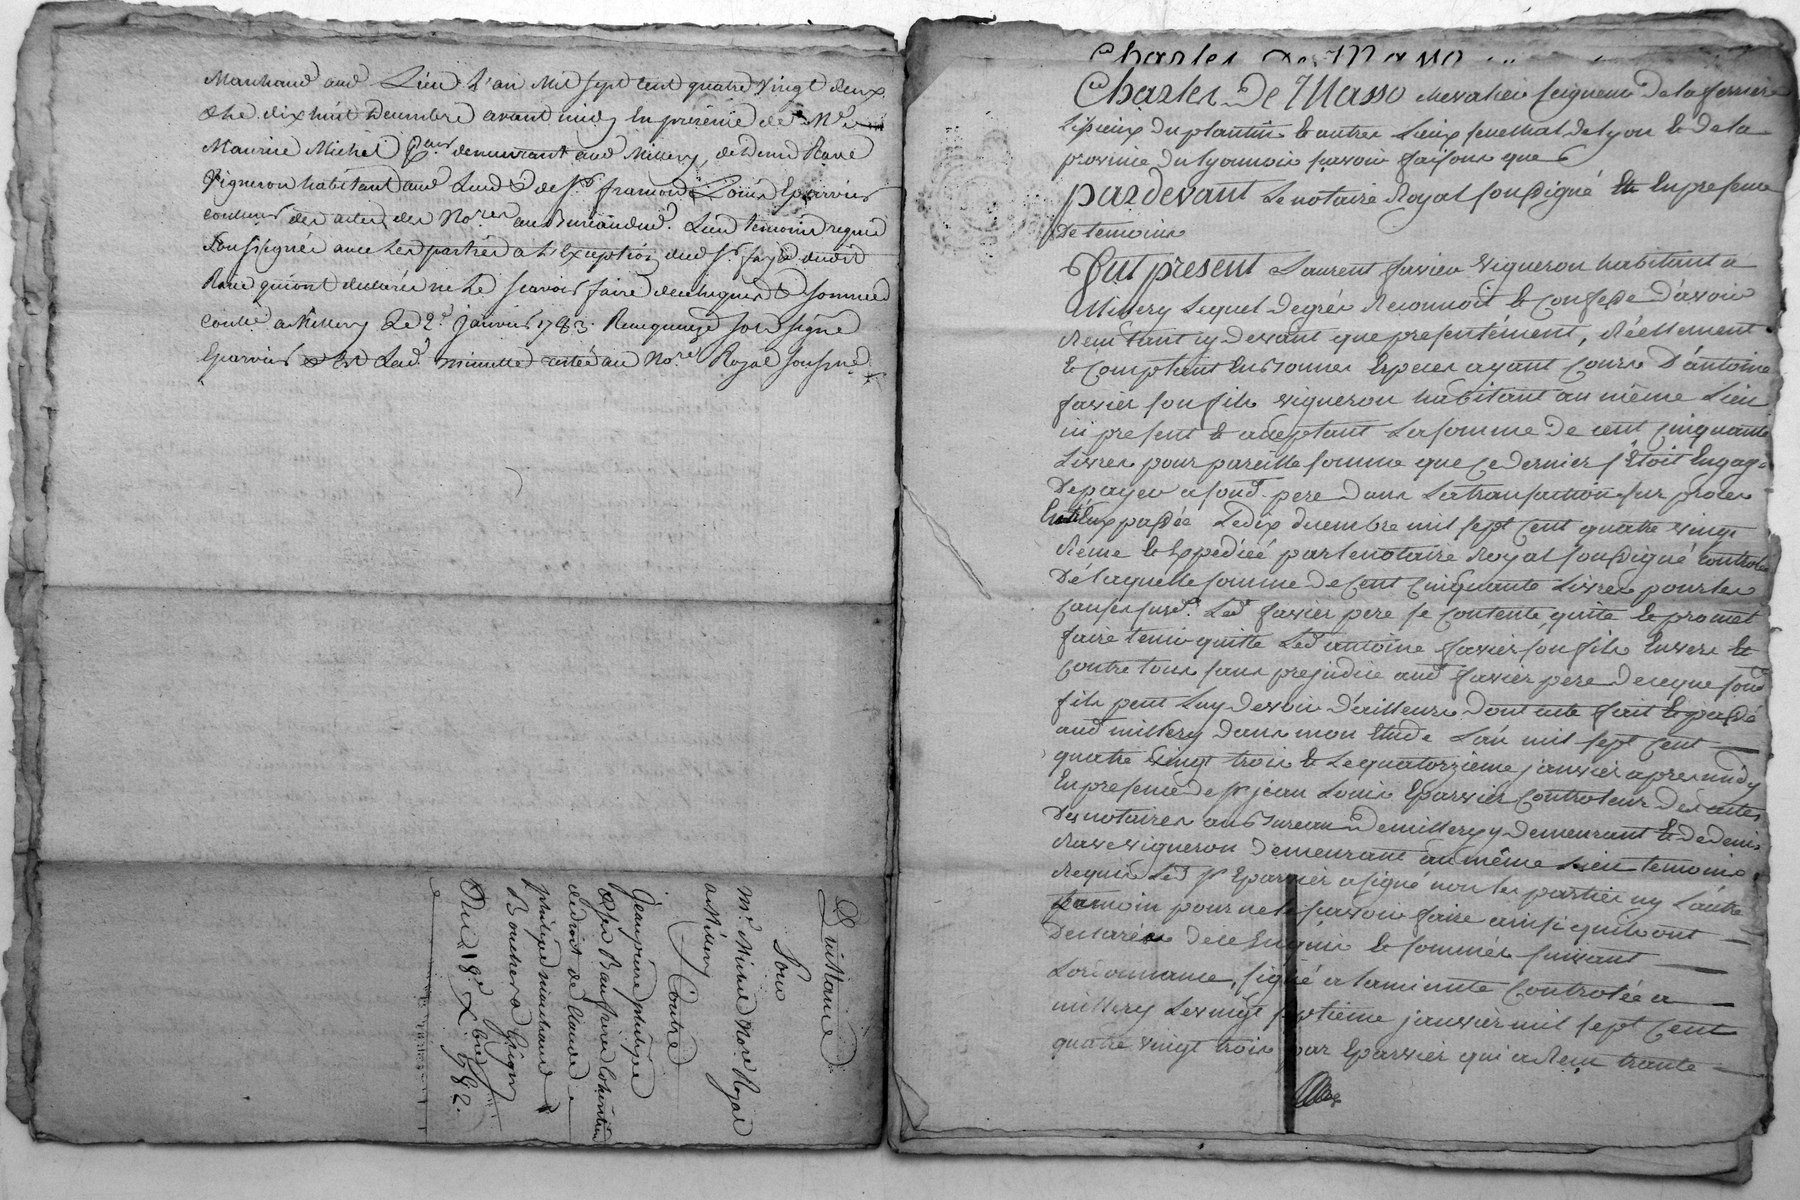 Marchand aud Lieu L'an Mil sept cent quatre vingt deux
& Le dix huit Decembre avant midy En presence de Me
Maurice Michel demeurant aud Millery, & de Denis Rave
Vigneron habitant aud Lieu & de Sr Louis Eparvier
des actes des Nores au Bureau dud. Lieu temoins requis
Soussignés avec Les parties a L'Exception dud Sr
Rave qui ont declarés ne Le scavoir faire de ce Enquis & sommés
a Millery Le 2e Janvier 1783. Recu quinze sols signé
Eparvier & Est Lad. minutte restée au Nore Royal soussigné
Quittance
Pour
Mr Michel Nore Royal
a Millery
Contre
Jeanpierre philippe
Beaufrere Coheritier
& droit de Claude
philippe marchand
Boucher a Grigny
Du 18e Xbre 1782.
Charles De Masso
Charles De Masso chevalier seigneur De la ferriere
Lissieux du plantin & autres Lieux senechal de Lyon & de la
province du Lyonnois savoir faisons que
pardevant Le notaire Royal soussigné & En presence
De temoins
fut present Laurent favier vigneron habitant a
Millery Lequel De gré Reconnoit & Confesse D'avoir
Recu tant cy devant que presentement, Réellement
& Comptant En Bonnes Especes ayant Cours D'antoine
favier son fils vigneron habitant au même Lieu
ici present & acceptant La somme De cent cinquante
Livres pour pareille somme que ce dernier s'étoit Engagé
De payer a sond. pere Dans La transaction sur procès
Entr'Eux passée Le dix decembre mil sept cent quatre vingt
& Expediée par le notaire Royal soussigné controlée
De Laquelle somme de Cent Cinquante Livres pour les
causes susd. Led favier pere se Contente, quitte & promet
faire tenir quitte Led antoine favier son fils Envers &
Contre tous sans prejudice aud favier pere De ce que sond
fils peut Luy Devoir D'ailleurs Dont acte fait & passé
aud millery Dans mon Etude L'an mil sept Cent
quatre vingt trois & Le quatorzieme janvier apres midy
En presence De Sr jean Louis Eparvier Controleur Des actes
Des notaires au Bureau De millery y Demeurant & De denis
Rave vigneron Demeurant au même Lieu temoins
Requis Led Sr Eparvier a signé non les parties ny L'autre
temoin pour ne le savoir faire ainsi qu'ils ont
Declarés de ce Enquis & sommés suivant
Lordonnance, signé a la minute Controlée a
millery Le vingt septieme janvier mil sept Cent
quatre vingt trois par Eparvier qui a Recu trente